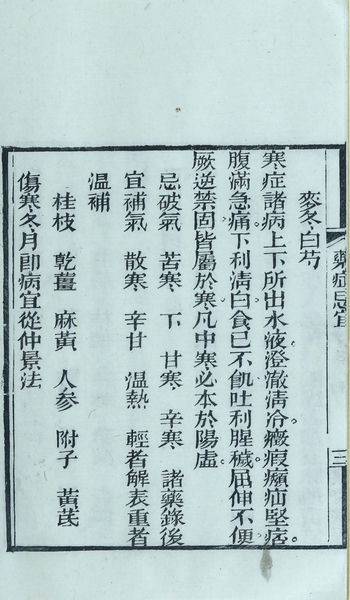 藥症忌宜
三
麥冬白芍
寒症諸病上下所出水液澄澈清冷癥瘕㿗疝堅痞
腹滿急痛下利清白食已不飢吐利腥穢屈伸不便
厥逆禁固皆屬於寒凡中寒必本於陽虛
忌破氣 苦寒 下 甘寒 辛寒 諸藥錄後
宜補氣 散寒 辛甘 溫熱 輕者解表重者
溫補
桂枝 乾薑 麻黃 人參 附子 黃芪
傷寒冬月卽病宜從仲景法